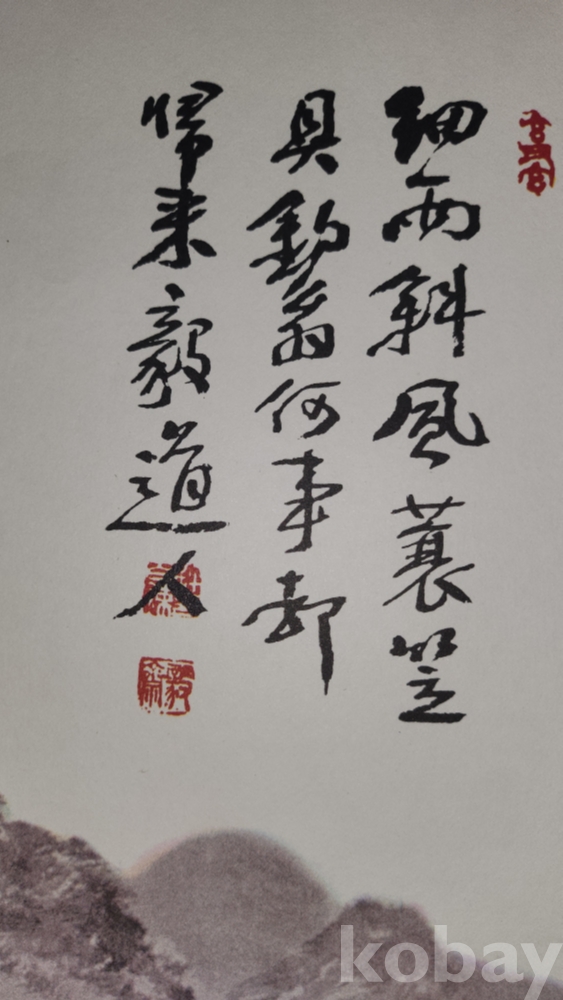 細雨斜風蓑笠
具釣翁何事却
帰来毅道人
毅齋
kobay